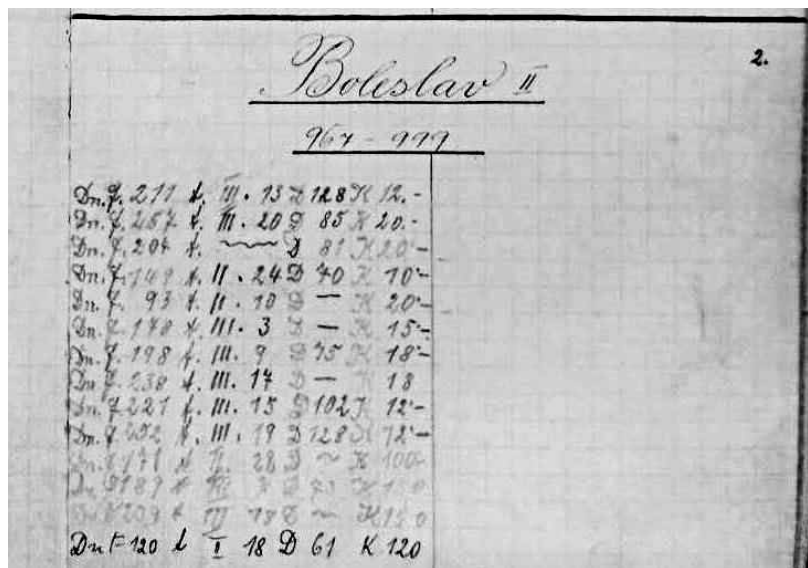 2.
Boleslav II
967 - 999
Dn. F. 211 t. III. 13 D 128 K 12.-
Dn. F. 257 t. III. 20 D 85 K 20.-
Dn. F. 204 t. D 81 K 20'-
Dn. F. 149 t. II. 24 D 70 K 10'-
Dn. F. 93 t. II. 10 D — K 20'-
Dn. F. 178 t. III. 3 D — K 15'-
Dn. F. 198 t. III. 9 D 75 K 18'-
Dn. F. 238 t. III. 17 D — K 18
Dn. F. 221 t. III. 15 D 102 K 12'-
Dn. F. 252 t. III. 19 D 128 K 12'-
171 t II. 28 D ~ K 100-
189 t III K
t III 18 ~ K
Dn F 120 t I 18 D 61 K 120